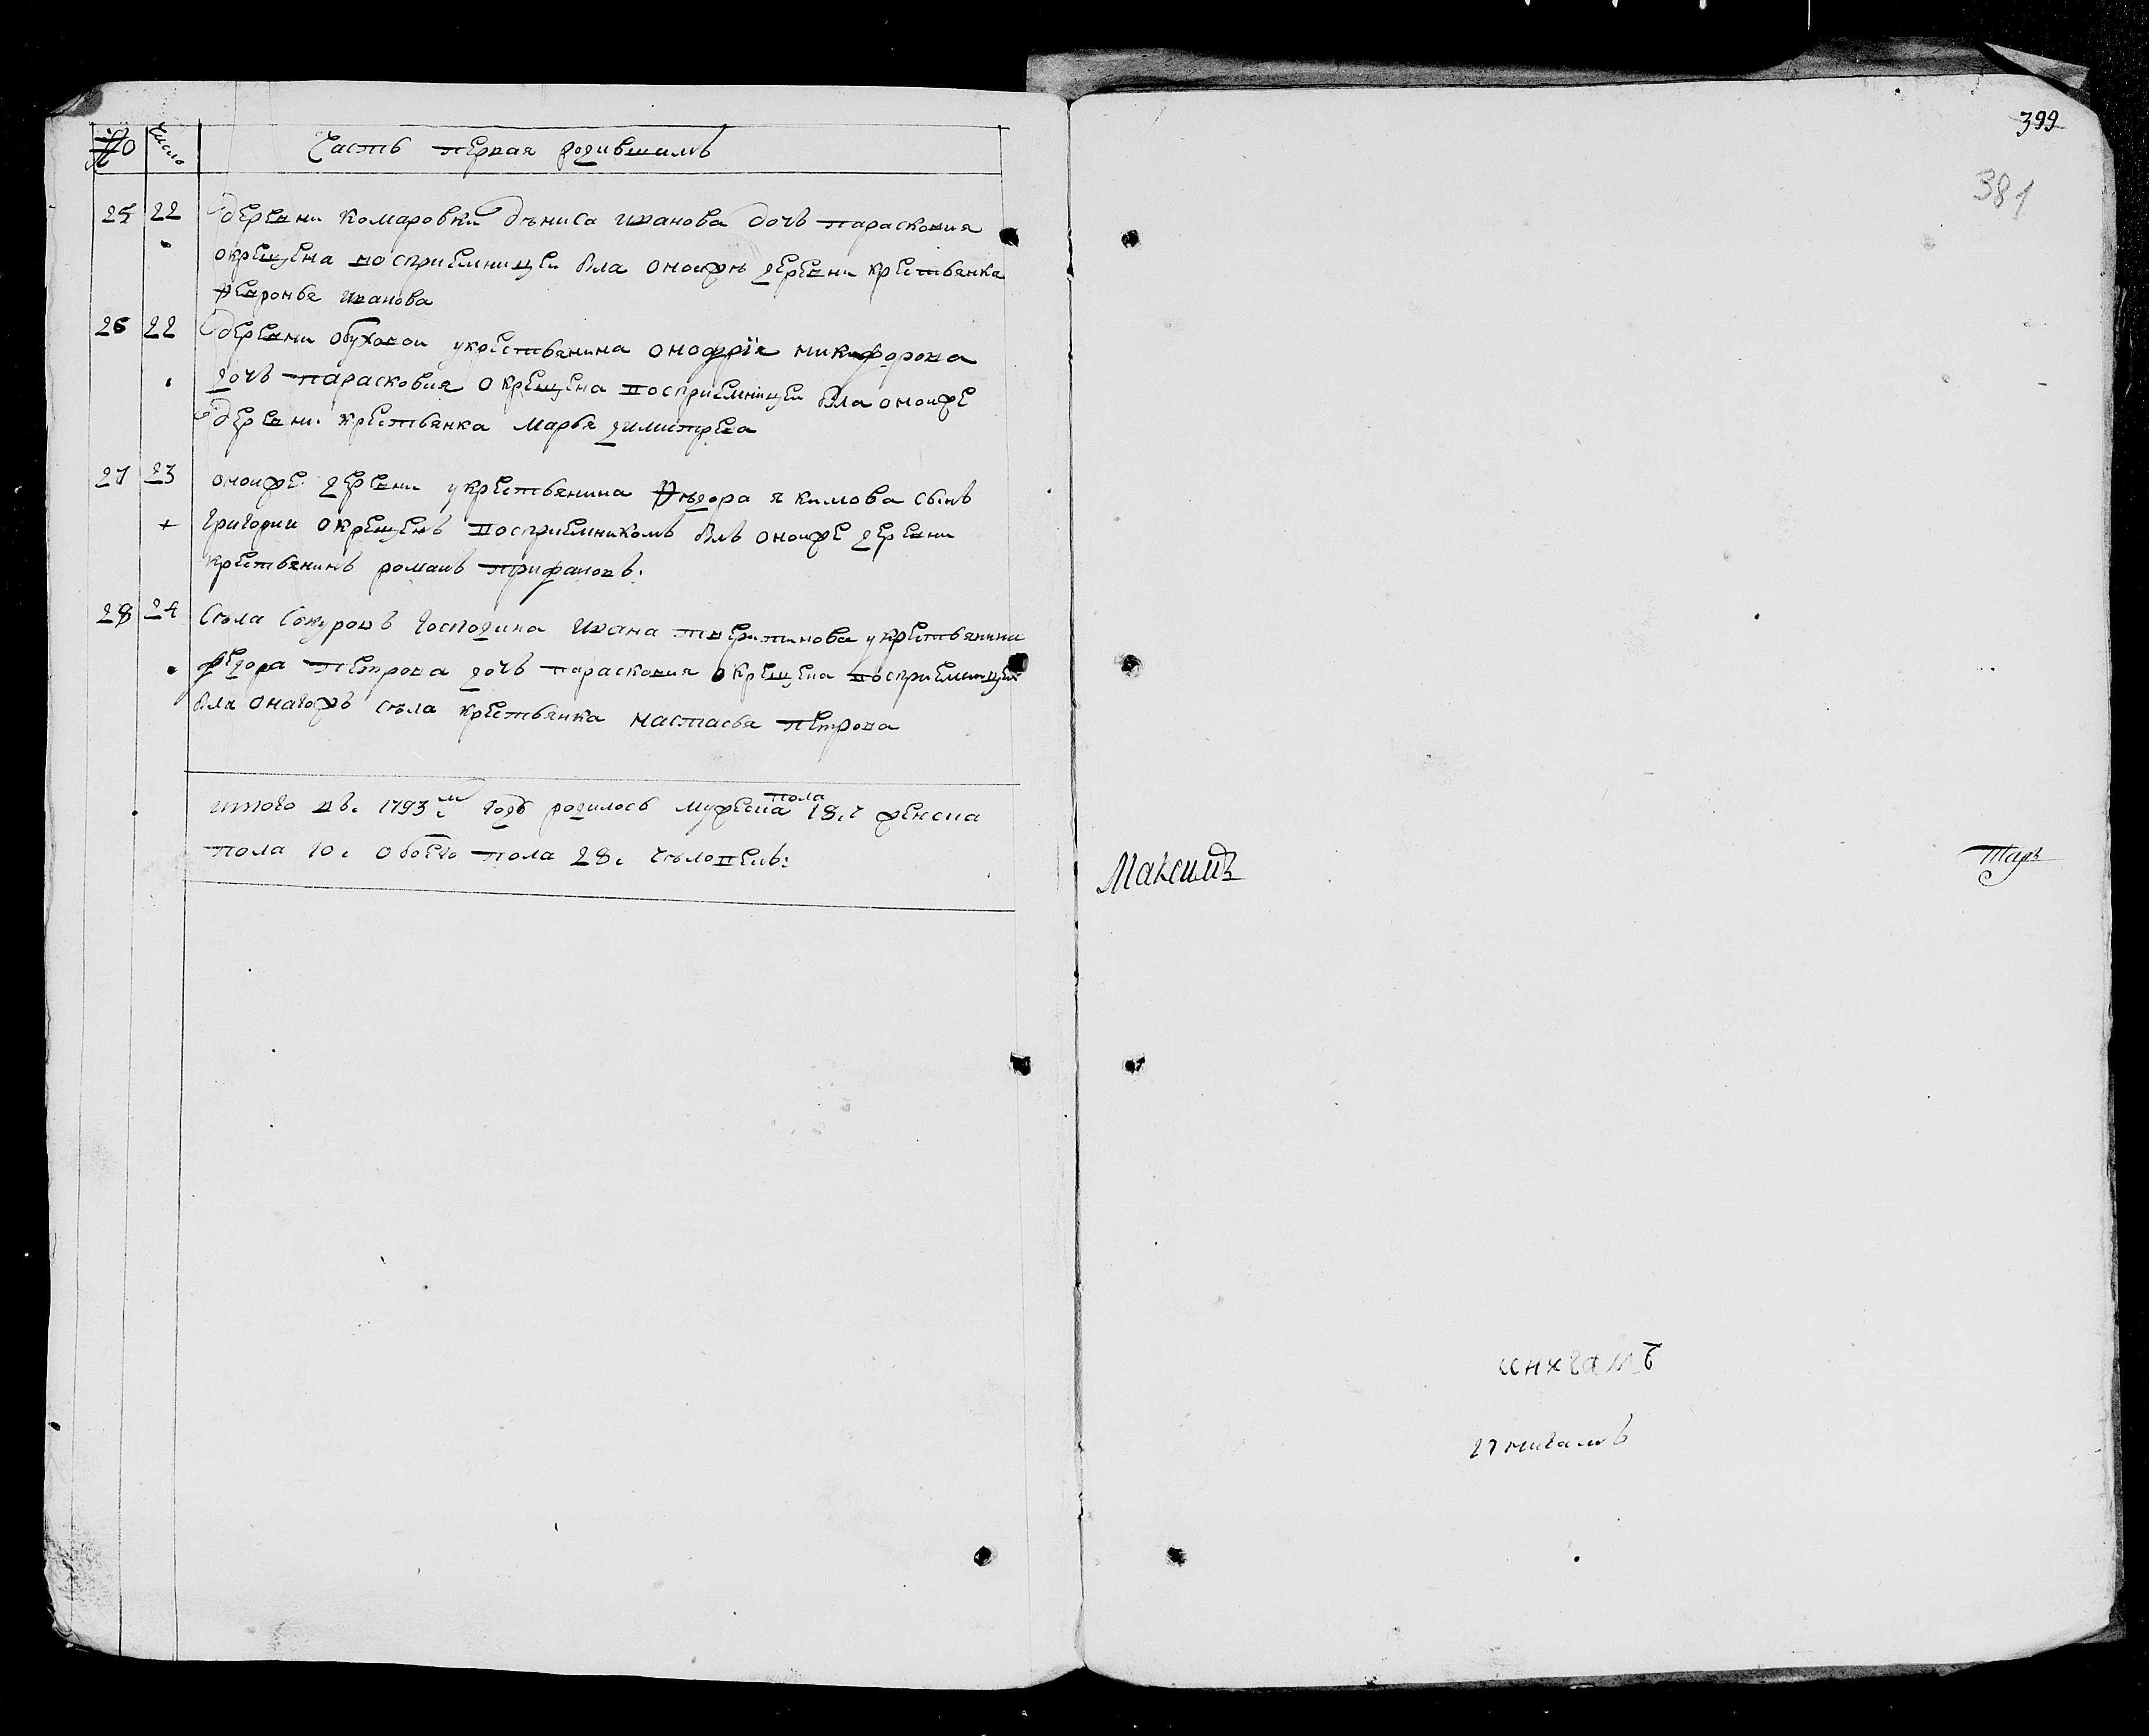 № Число Часть первая родившимъ
25 22 деревни комаровки дѣниса иванова дочь парасковия
окрещена восприемницеи бла оноиже деревни крестьянка
февронья иванова
26 22 деревни обуховои укрестьянина онофрїя никифорова
дочь парасковия окрещена восприемницеи бла оноиже
деревни крестьянка марья димитрева
27 23 оноиже деревни укрестьянина фѣдора якимова сынъ
григории окрещенъ восприемникомъ блъ оноиже деревни
крестьянинъ романъ трифановъ.
28 24 Сѣла господина ивана укрестьянина
федора петрова дочь парасковия окрещена восприемницеи
бла онагожъ сѣла крестьянка настасья петрова
итого въ. 1793м годѣ родилось мужеска пола 18. женска
пола 10. обоего пола 28. чѣловекъ:
399
381
Максимъ